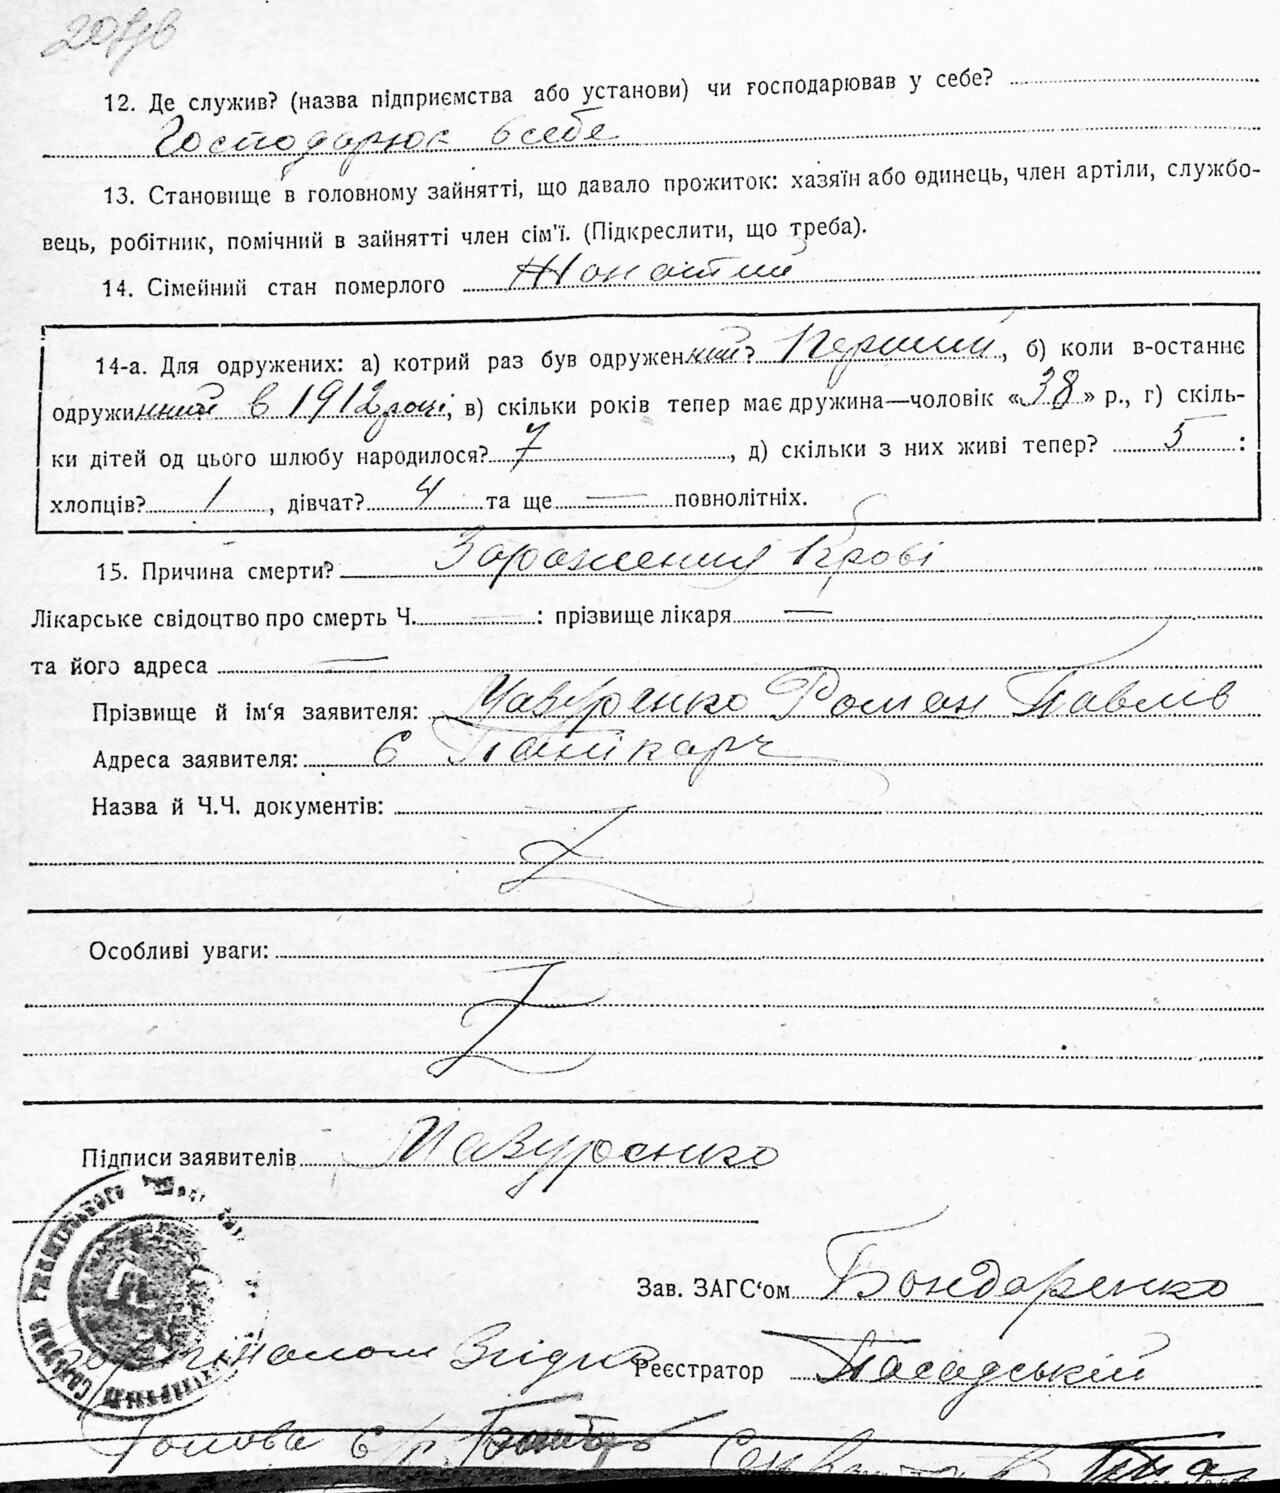 12. Де служив? (назва підприємства або установи) чи господарював у себе?
Господарюс в себе
13. Становище в головному зайнятті, що давало прожиток: хазяїн або одинець, член артіли, службо-
вець, робітник, помічний в зайнятті член сім'ї. (Підкреслити, що треба).
14. Сімейний стан померлого Жонатий
14-а. Для одружених: а) котрий раз був одруженний? Перший, б) коли в-останнє
одружинний в 1912 році, в) скільки років тепер має дружина—чоловік «38» р., г) скіль-
ки дітей од цього шлюбу народилося? 7, д) скільки з них живі тепер? 5:
хлопців? 1, дівчат? 4 та ще — повнолітніх.
15. Причина смерти? Зараження Крові
Лікарське свідоцтво про смерть Ч. — : прізвище лікаря —
та його адреса —
Прізвище й ім'я заявителя: Мавуренко Роман Павлів
Адреса заявителя: С
Назва й Ч.Ч. документів:
Особливі уваги:
Підписи заявителів Мавуренко
Зав. ЗАГС'ом Бондаренко
Згідно Реєстратор Посадський
Голова с/р